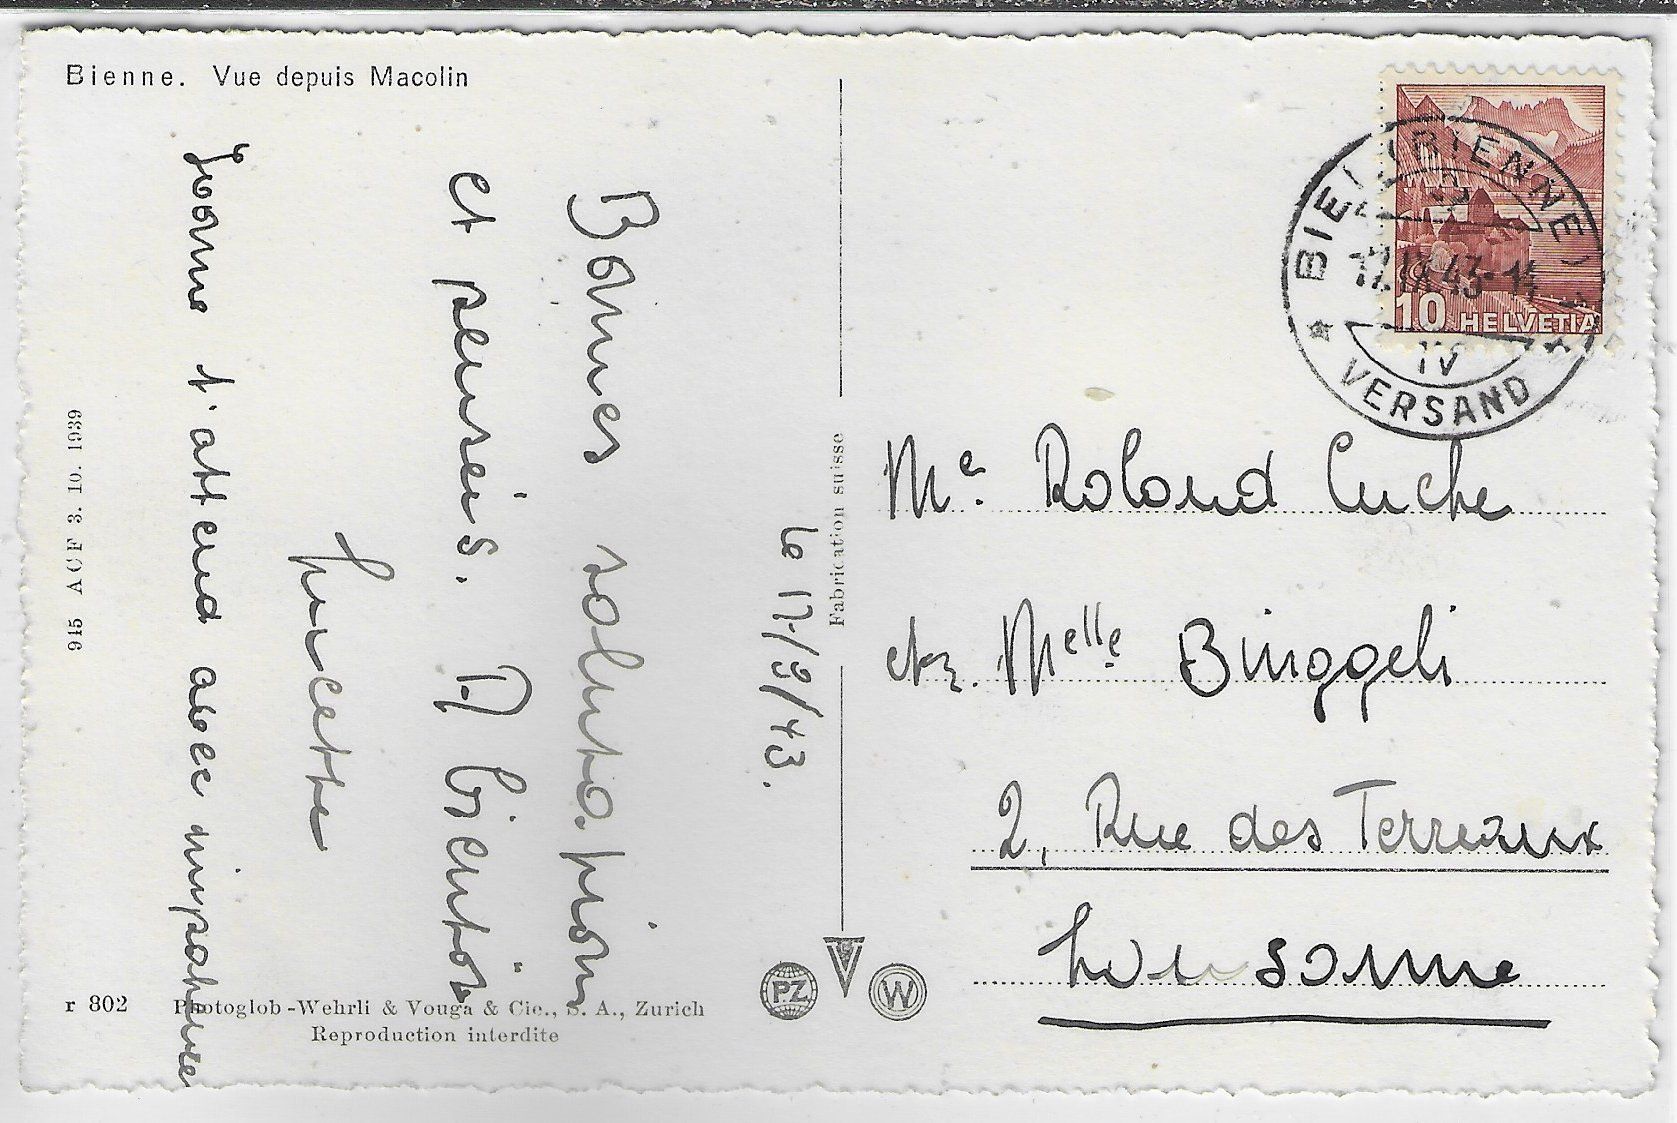 Bienne. Vue depuis Macolin
le 17/9/43.
Bonnes salutations
et pensées. A bientôt
Lucette
Yvonne t'attend avec impatience
915 ACF 3. 10. 1939
r 802 Photoglob-Wehrli & Vouga & Cie., S. A., Zurich
Reproduction interdite
Fabrication suisse
PZ
V
W
BIEL (BIENNE) 1
17.IX.43-14
IV
VERSAND
10 HELVETIA
Mr. Roland Cuche
chz. Melle Binggeli
2, Rue des Terreaux
Lausanne